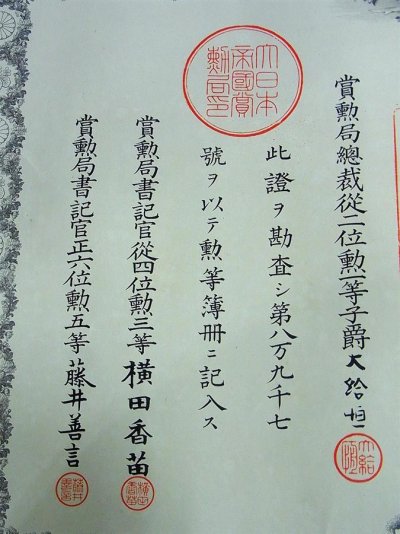 賞勲局總裁從二位勲一等子爵大給恒
大給恒
大日本
帝國賞
勲局印
此證ヲ勘査シ第八万九千七
號ヲ以テ勲等簿冊ニ記入ス
賞勲局書記官從四位勲三等横田香苗
横田香苗
賞勲局書記官正六位勲五等藤井善言
藤井善言